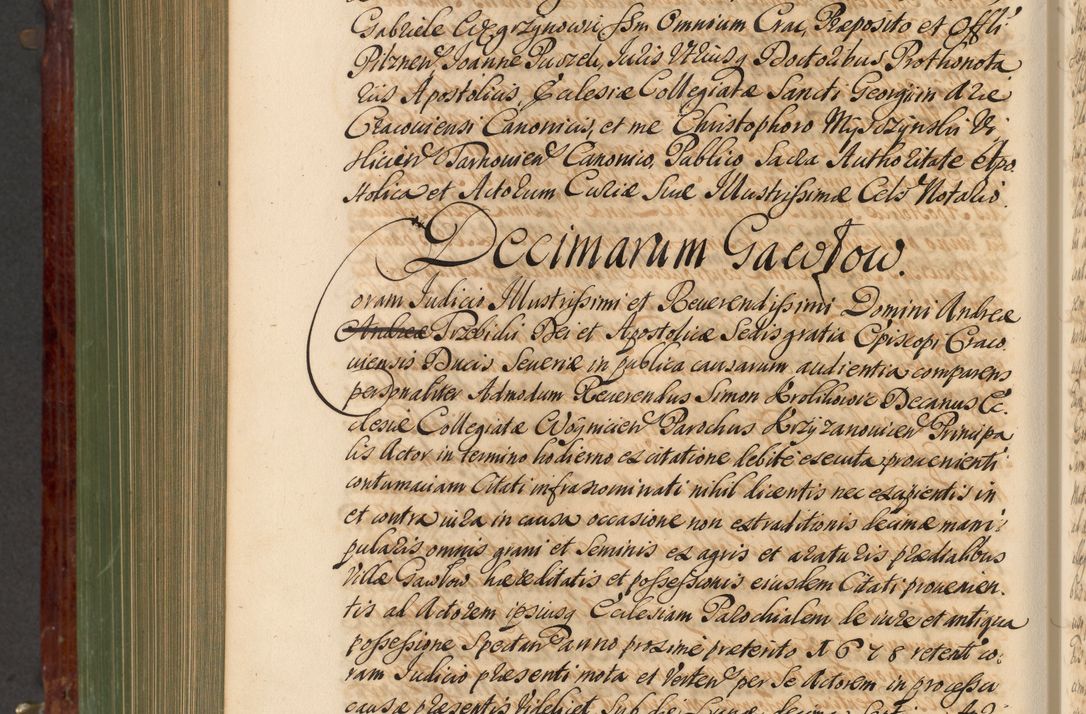 Gabriele Węgrzynowic SSm Omnium Crac, Præposito et Offli
Pilznen Joanne Puszeli, Juris Vtriusq Doctoribus Prothonota
riis Apostolicis, Ecclesiæ Collegiatæ Sancti Georgii in Arce
Cracoviensi Canonicis, et me Christophoro Myszzynski Vi
slicien Tarnovien Canonico, Publico Sacra Authoritate Apo
stolica et Actorum Curiæ Suæ Illustrissimæ Cels Notario.
Decimarum Gawłow.
Coram Judicio Illustrissimi et Reverendissimi Domini Andreæ
Andreæ Trzebicki Dei et Apostolicæ Sedis gratia Episcopi Craco
viensis Ducis Severiæ in publica causarum audientia comparens
personaliter Admodum Reverendus Simon Krolikowic Decanus Ec:
clesiæ Collegiatæ Woynicien Parochus Krzyzanovicen Principa
lis Actor in termino hodierno ex citatione debite executa, provenienti
contumaciam Citati infranominati nihil dicentis nec excipientis in
et contra jura in causa occasione non extraditionis decimæ mani:
pularis omnis grani et Seminis ex agris et araturis prædialibus
Villæ Gawlow hæreditatis et possessionis eiusdem Citati provenien.
tis ad Actorem ipsiusq Ecclesiam Parochialem de iure et antiqua
possessione Spectan anno proxime præterito 1678 retenti co:
ram Judicio præsenti mota et Verten per se Actorem in processu
causæ præsentis videlicet Sub die